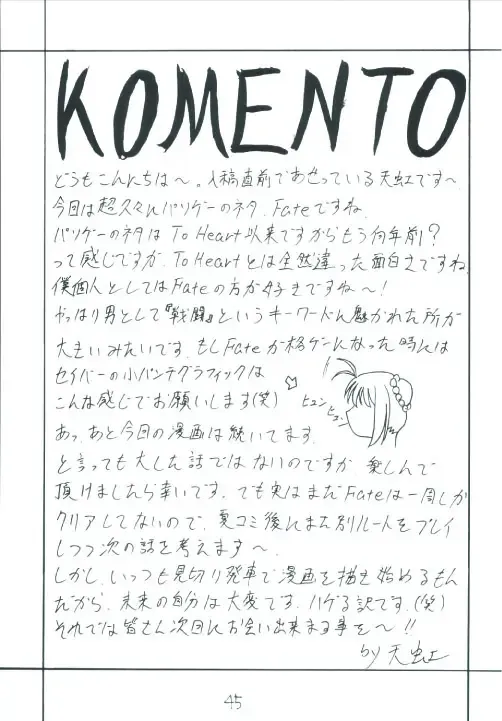 KOMENTO
どうもこんにちは〜。入稿直前であせっている天虹です〜
今回は超久々にパソゲーのネタ、Fateですね
パソゲーのネタは To Heart以来ですからもう何年前？
って感じですが、To Heartとは全然違った面白さですね
僕個人としてはFateの方が好きですね〜！
やっぱり男として『戦闘』というキーワードに魅かれた所が
大きいみたいです。もしFateが格ゲーになった時には
セイバーの小パンチグラフィックは
こんな感じでお願いします(笑)
ヒュン
ヒュン
あっ、あと今回の漫画は続いてます。
と言っても大した話ではないのですが 楽しんで
頂けましたら幸いです。でも実はまだFateは一周しか
クリアしてないので、夏コミ後にまた別ルートをプレイ
しつつ次の話を考えます〜
しかし、いっつも見切り発車で漫画を描き始めるもん
だから、未来の自分は大変です。ハゲる訳です。(笑)
それでは皆さん次回にお会い出来ます事を〜!!
by 天虹
45